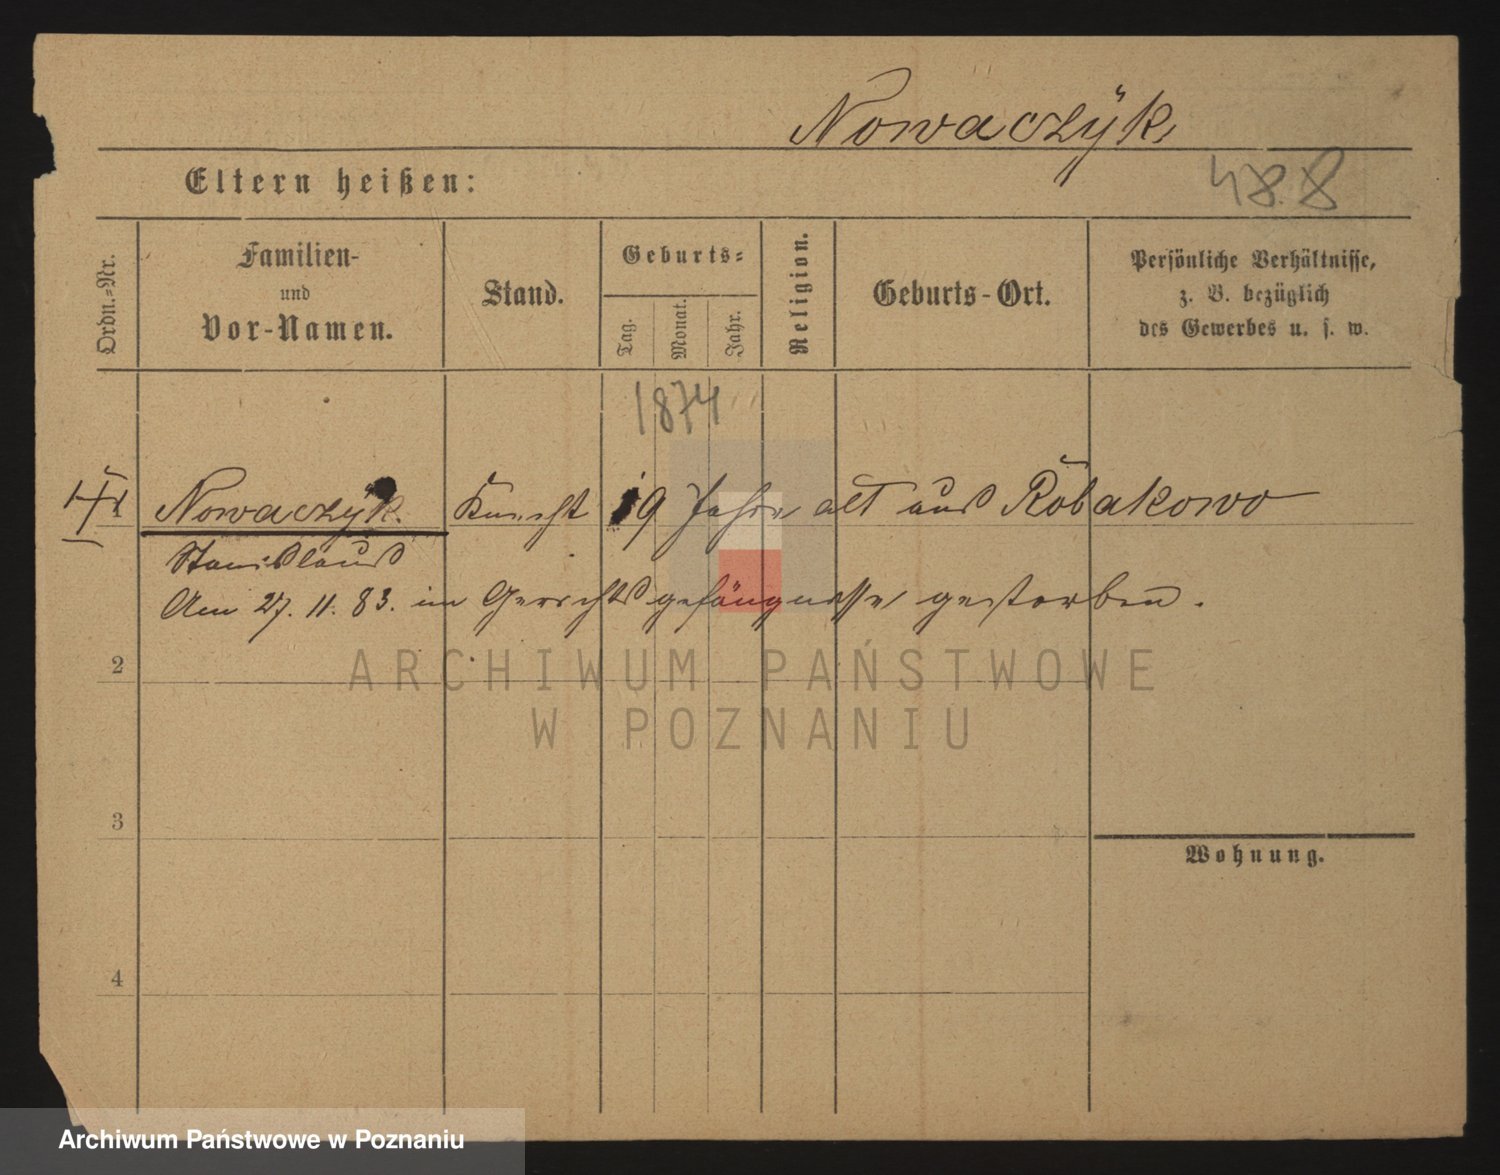 Nowaczÿk
Eltern heißen:
488
Ordn.=Nr.
Familien-
und
Vor-Namen.
Stand.
Geburts=
Tag.
Monat.
Jahr.
Religion.
Geburts-Ort.
Persönliche Verhältnisse,
z. B. bezüglich
des Gewerbes u. s. w.
1874
1 Nowaczÿk Knecht 19 Jahre alt aus Robakowo
Stanislaus
Am 27. 11. 83. im Gerichtsgefängnisse gestorben.
2
ARCHIWUM PAŃSTWOWE
W POZNANIU
3
Wohnung.
4
Archiwum Państwowe w Poznaniu